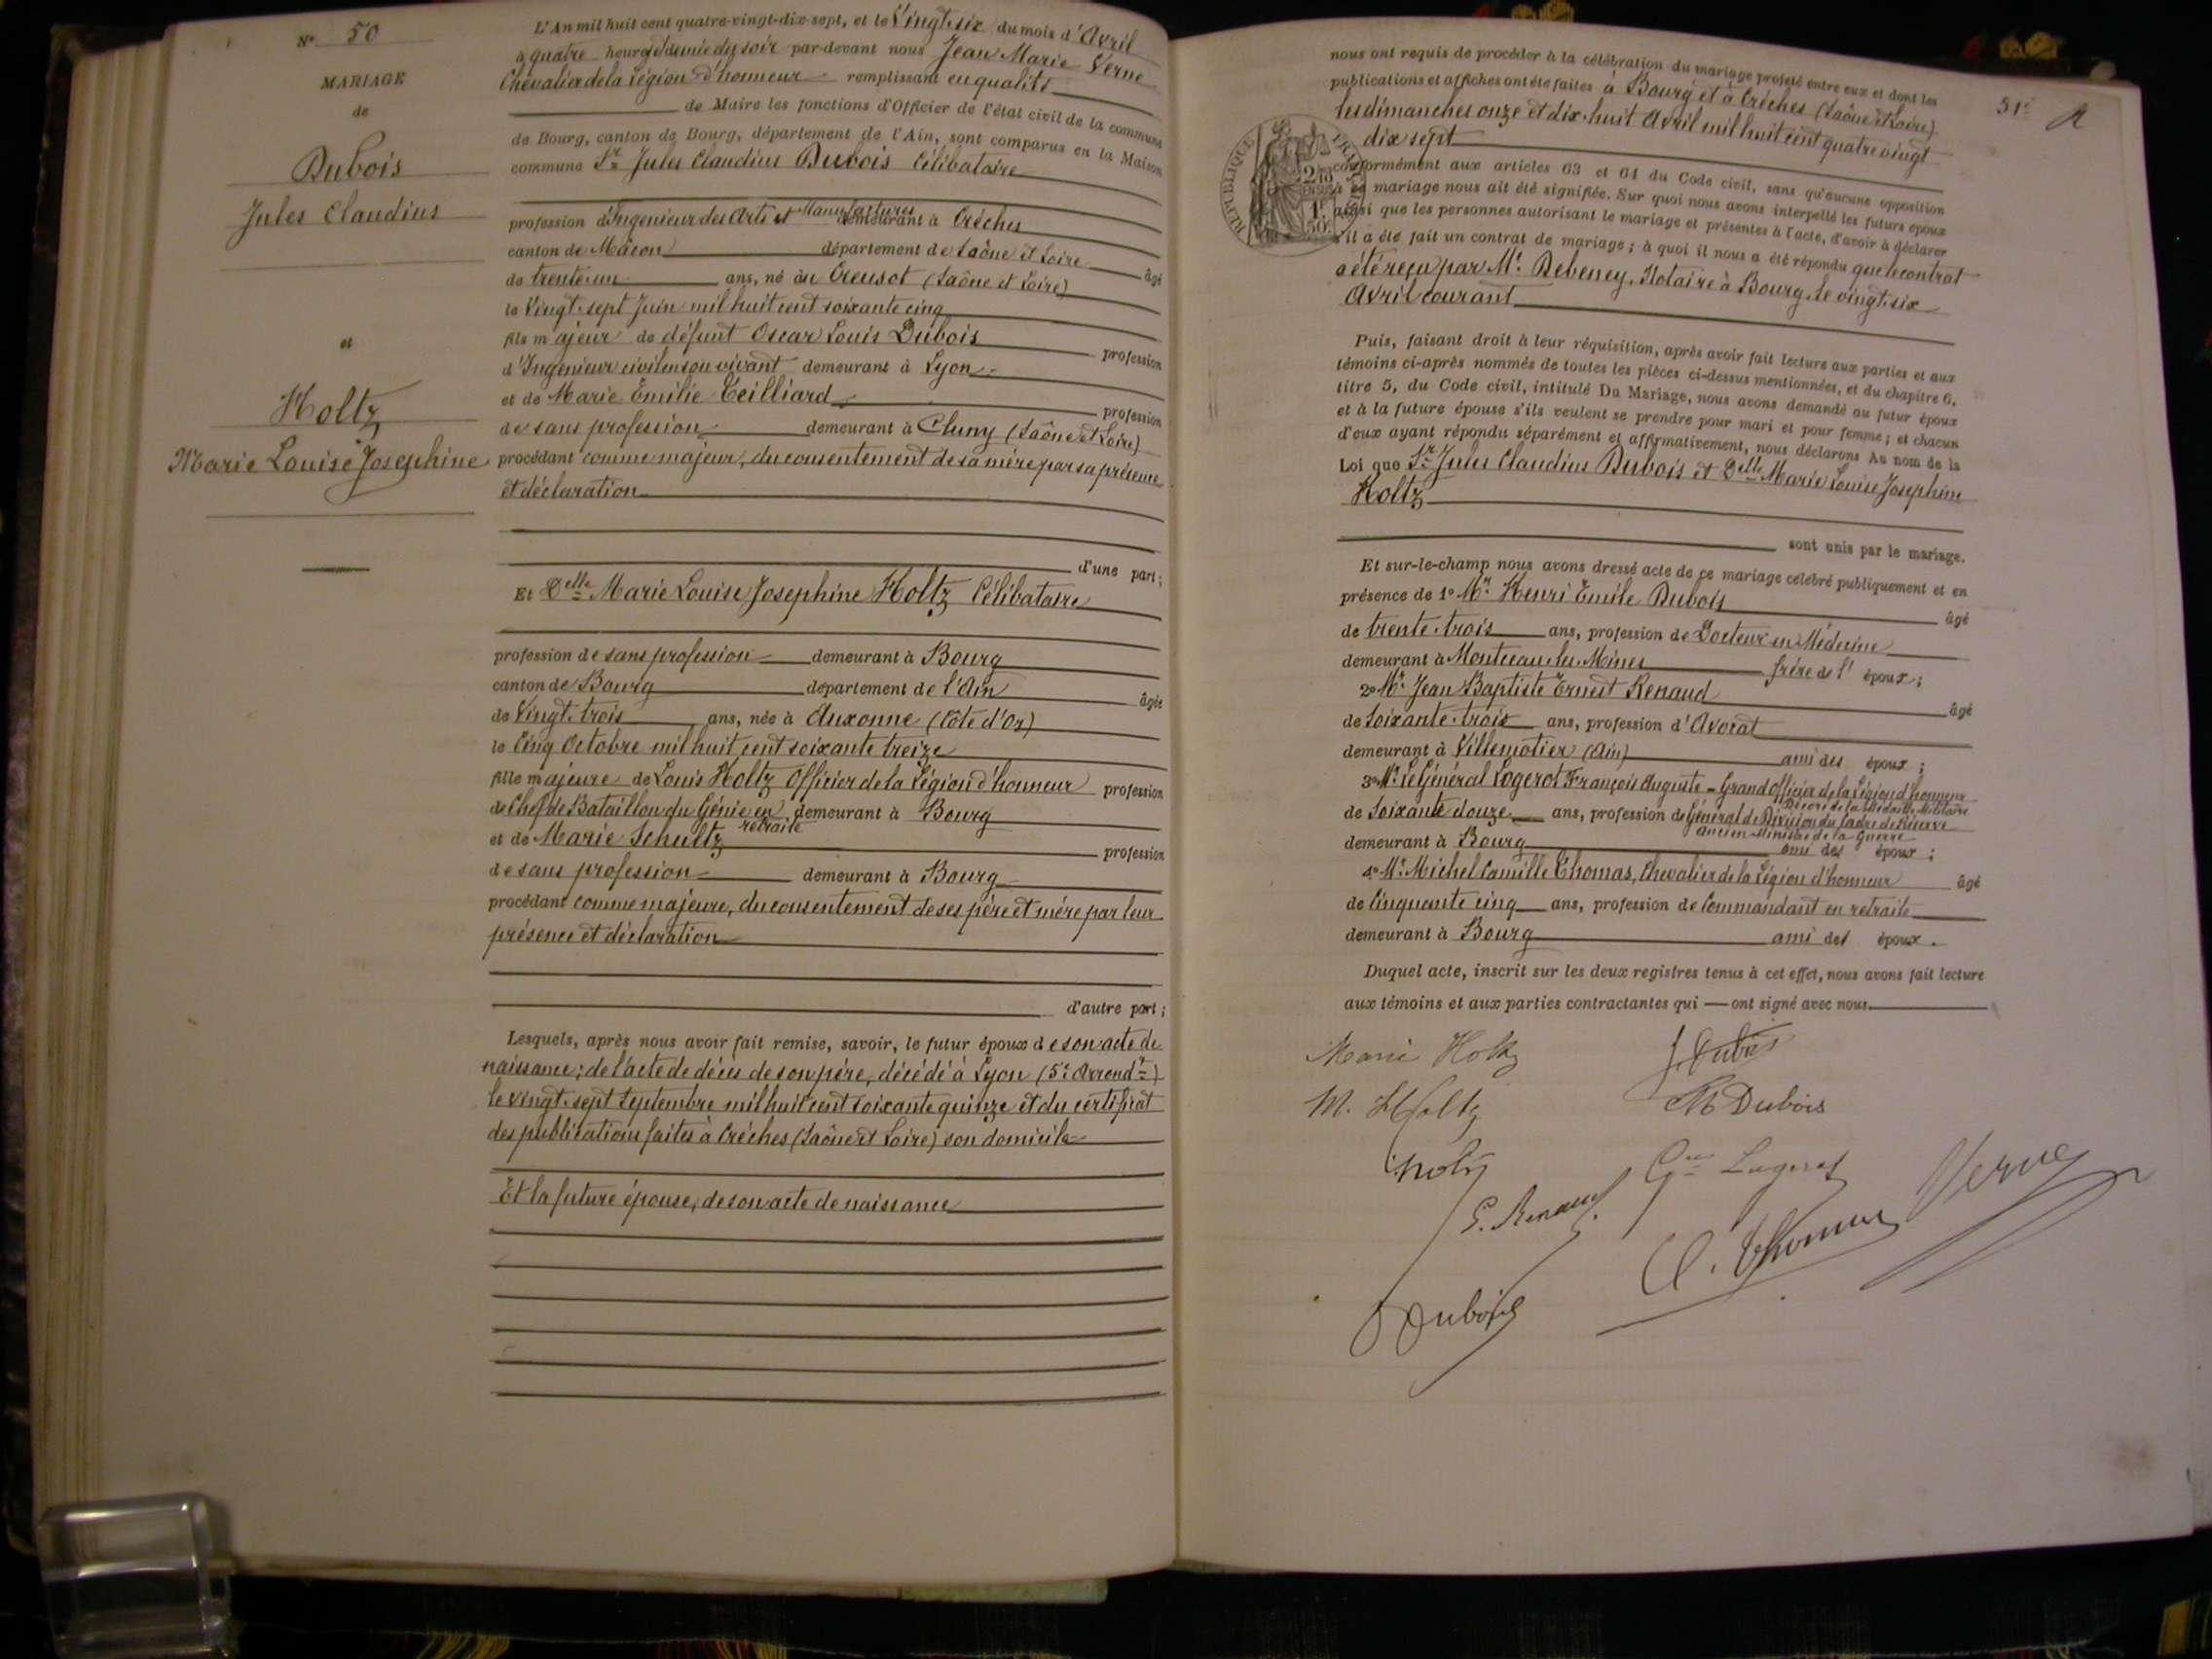 N° 50
MARIAGE
de
Dubois
Jules Claudius
et
Holtz
Marie Louise Josephine
L'An mil huit cent quatre-vingt-dix-sept, et le Vingt-six du mois d'Avril
à quatre heures et demie du soir par-devant nous Jean Marie Verne
Chevalier de la Légion d'honneur remplissant en qualité
de Maire les fonctions d'Officier de l'état civil de la commune
de Bourg, canton de Bourg, département de l'Ain, sont comparus en la Maison
commune Sr Jules Claudius Dubois Célibataire
profession d'Ingenieur des Arts et Manufactures demeurant à Crêches
canton de Mâcon département de Saône et Loire âgé
de trente-un ans, né au Creusot (Saône et Loire)
le Vingt-sept Juin mil huit cent soixante cinq
fils majeur de défunt Oscar Louis Dubois profession
d'Ingénieur civil en son vivant demeurant à Lyon
et de Marie Emilie Teilliard profession
de sans profession demeurant à Cluny (Saône et Loire)
procédant comme majeur, du consentement de sa mère par sa présence
et déclaration
d'une part;
Et Delle Marie Louise Josephine Holtz Célibataire
profession de sans profession demeurant à Bourg
canton de Bourg département de l'Ain âgée
de Vingt-trois ans, née à Auxonne (Côte d'Or)
le Cinq Octobre mil huit cent soixante treize
fille majeure de Louis Holtz Officier de la Légion d'honneur profession
de Chef de Bataillon du Génie en retraite demeurant à Bourg
et de Marie Schultz profession
de sans profession demeurant à Bourg
procédant comme majeure, du consentement de ses père et mère par leur
présence et déclaration
d'autre part;
Lesquels, après nous avoir fait remise, savoir, le futur époux de son acte de
naissance; de l'acte de décès de son père, décédé à Lyon (5e Arrondt)
le vingt-sept Septembre mil huit cent soixante quinze et du certificat
des publications faites à Crêches (Saône et Loire) son domicile
Et la future épouse, de son acte de naissance
51e
nous ont requis de procéder à la célébration du mariage projeté entre eux et dont les
publications et affiches ont été faites à Bourg et à Crêches (Saône et Loire)
les dimanches onze et dix-huit Avril mil huit cent quatre vingt
dix sept
conformément aux articles 63 et 64 du Code civil, sans qu'aucune opposition
à ce mariage nous ait été signifiée. Sur quoi nous avons interpellé les futurs époux
ainsi que les personnes autorisant le mariage et présentes à l'acte, d'avoir à déclarer
s'il a été fait un contrat de mariage; à quoi il nous a été répondu que le contrat
a été reçu par Me Debeney, Notaire à Bourg, le vingt-six
Avril courant
RÉPUBLIQUE FRANÇAISE
Puis, faisant droit à leur réquisition, après avoir fait lecture aux parties et aux
témoins ci-après nommés de toutes les pièces ci-dessus mentionnées, et du chapitre 6,
titre 5, du Code civil, intitulé Du Mariage, nous avons demandé au futur époux
et à la future épouse s'ils veulent se prendre pour mari et pour femme; et chacun
d'eux ayant répondu séparément et affirmativement, nous déclarons Au nom de la
Loi que Sr Jules Claudius Dubois et Delle Marie Louise Josephine
Holtz
sont unis par le mariage.
Et sur-le-champ nous avons dressé acte de ce mariage célébré publiquement et en
présence de 1° Mr Henri Emile Dubois âgé
de trente-trois ans, profession de Docteur en Médecine
demeurant à Montceau-les-Mines frère de l'époux;
2° Mr Jean Baptiste Ernest Renaud âgé
de soixante-trois ans, profession d'Avocat
demeurant à Villemotier (Ain) ami des époux;
3° Mr Le Général Logerot François Auguste - Grand Officier de la Légion d'honneur
Décoré de la Médaille Militaire
de Soixante douze ans, profession de Général de Division du Cadre de Réserve
ancien Ministre de la Guerre
demeurant à Bourg ami des époux;
4° Mr Michel Camille Thomas, Chevalier de la Légion d'honneur âgé
de Cinquante cinq ans, profession de Commandant en retraite
demeurant à Bourg ami des époux.
Duquel acte, inscrit sur les deux registres tenus à cet effet, nous avons fait lecture
aux témoins et aux parties contractantes qui — ont signé avec nous.
Marie Holtz
J. Dubois
M. Holtz
Dubois
Holtz
Gal Logerot
Verne
E. Renaud
C. Thomas
Dubois